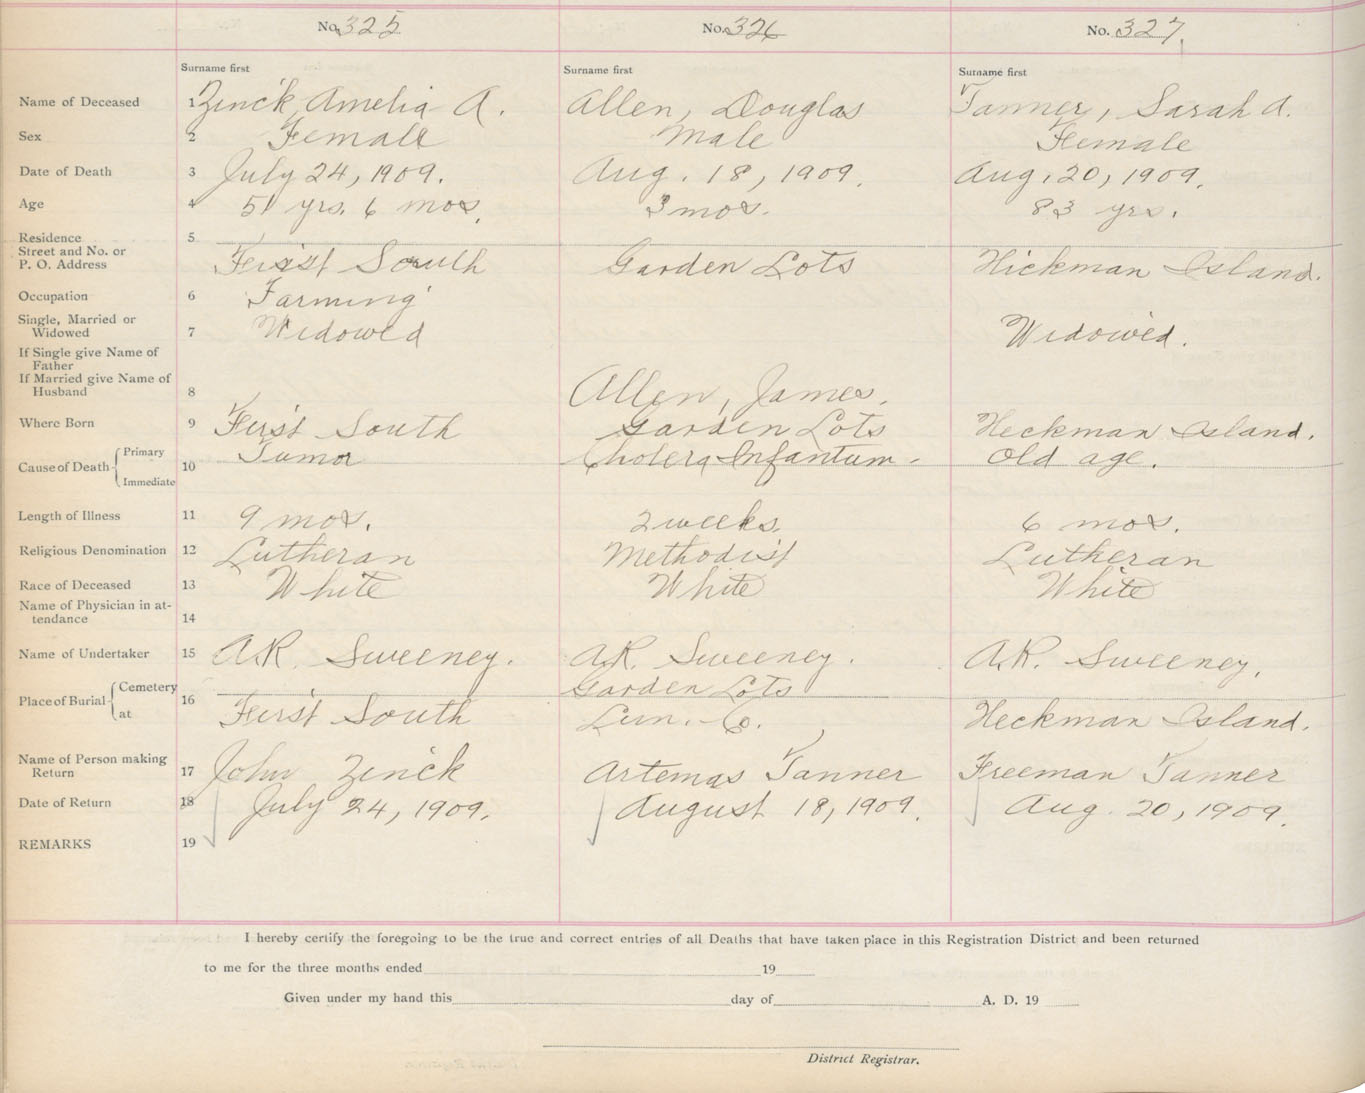 No. 325 No. 326 No. 327
Surname first Surname first Surname first
Name of Deceased 1 Zinck, Amelia A. Allen, Douglas Tanner, Sarah A.
Sex 2 Female Male Female
Date of Death 3 July 24, 1909. Aug. 18, 1909. Aug. 20, 1909.
Age 4 51 yrs. 6 mos. 3 mos. 83 yrs.
Residence 5
Street and No. or
P. O. Address First South Garden Lots Hickman Island.
Occupation 6 Farming
Single, Married or
Widowed 7 Widowed Widowed.
If Single give Name of
Father
If Married give Name of
Husband 8 Allen, James.
Where Born 9 First South Garden Lots Heckman Island.
Cause of Death Primary 10 Tumor Cholera Infantum - Old age.
Immediate
Length of Illness 11 9 mos. 2 weeks. 6 mos.
Religious Denomination 12 Lutheran Methodist Lutheran
Race of Deceased 13 White White White
Name of Physician in at-
tendance 14
Name of Undertaker 15 A.R. Sweeney. A.R. Sweeney. A.R. Sweeney.
Place of Burial Cemetery 16 Garden Lots
at First South Lun. Co. Heckman Island.
Name of Person making
Return 17 John Zinck Artemas Tanner Freeman Tanner
Date of Return 18 July 24, 1909. August 18, 1909. Aug. 20, 1909.
REMARKS 19
I hereby certify the foregoing to be the true and correct entries of all Deaths that have taken place in this Registration District and been returned
to me for the three months ended 19
Given under my hand this day of A. D. 19
District Registrar.